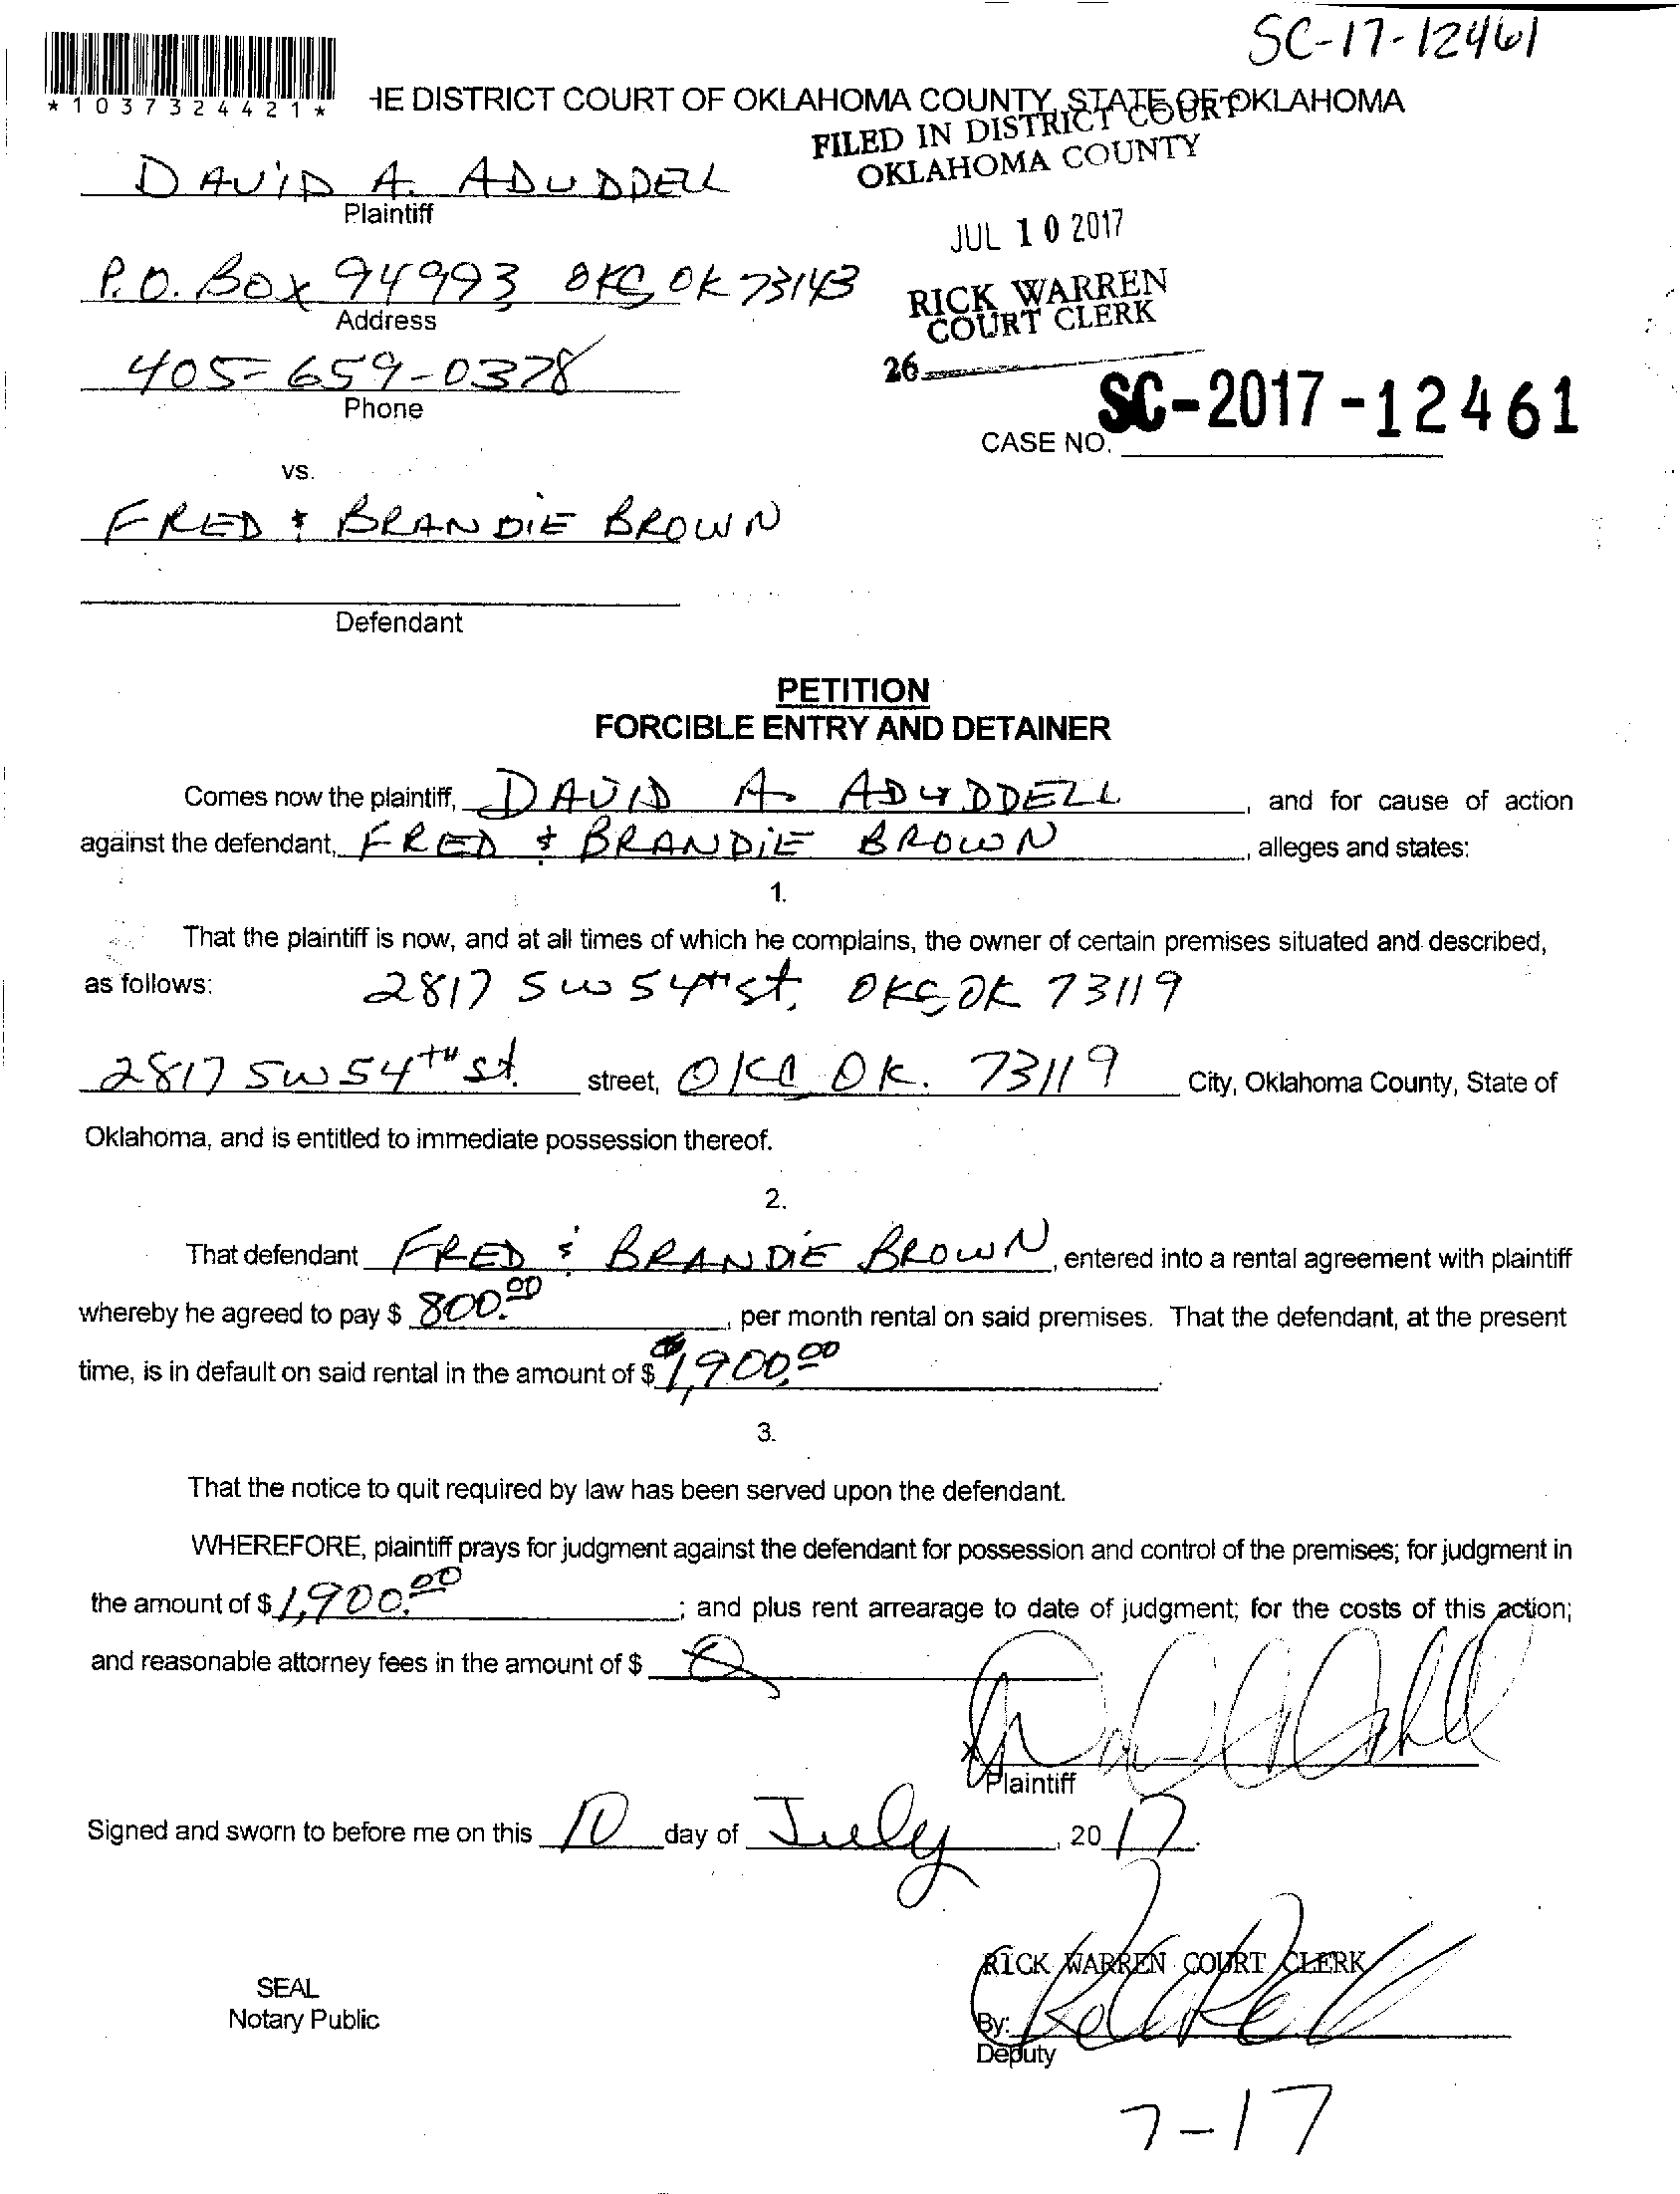 SC-17-12461
*1037324421*
HE DISTRICT COURT OF OKLAHOMA COUNTY, STATE OF OKLAHOMA
FILED IN DISTRICT COURT
OKLAHOMA COUNTY
DAVID A. ADUDDELL
Plaintiff
JUL 10 2017
P.O. Box 94993 OKC, OK 73143
Address
RICK WARREN
COURT CLERK
405-659-0378
Phone
26
SC-2017-12461
CASE NO.
vs.
FRED & BRANDIE BROWN
Defendant
PETITION
FORCIBLE ENTRY AND DETAINER
Comes now the plaintiff, DAVID A. ADUDDELL, and for cause of action
against the defendant, FRED & BRANDIE BROWN, alleges and states:
1.
That the plaintiff is now, and at all times of which he complains, the owner of certain premises situated and described,
as follows: 2817 SW 54TH St. OKC, OK 73119
2817 SW 54TH St. street, OKC OK. 73119 City, Oklahoma County, State of
Oklahoma, and is entitled to immediate possession thereof.
2.
That defendant FRED & BRANDIE BROWN, entered into a rental agreement with plaintiff
whereby he agreed to pay $ 800.00, per month rental on said premises. That the defendant, at the present
time, is in default on said rental in the amount of $ 1,900.00.
3.
That the notice to quit required by law has been served upon the defendant.
WHEREFORE, plaintiff prays for judgment against the defendant for possession and control of the premises; for judgment in
the amount of $ 1,900.00; and plus rent arrearage to date of judgment; for the costs of this action;
and reasonable attorney fees in the amount of $
Plaintiff
Signed and sworn to before me on this 10 day of July, 2017.
RICK WARREN COURT CLERK
SEAL
Notary Public
By:
Deputy
7-17